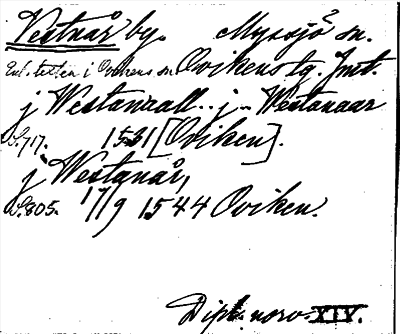 Vestnår by. Myssjö sn.
Enl. texten i Ovikens sn. Ovikens tg. Jmt.
j Westanaall.. j.. Westanaar
S. 717. 1531 [Oviken].
j Westanår,
S. 805. 17/9 1544 Oviken.
Dipl. norv. XIV.